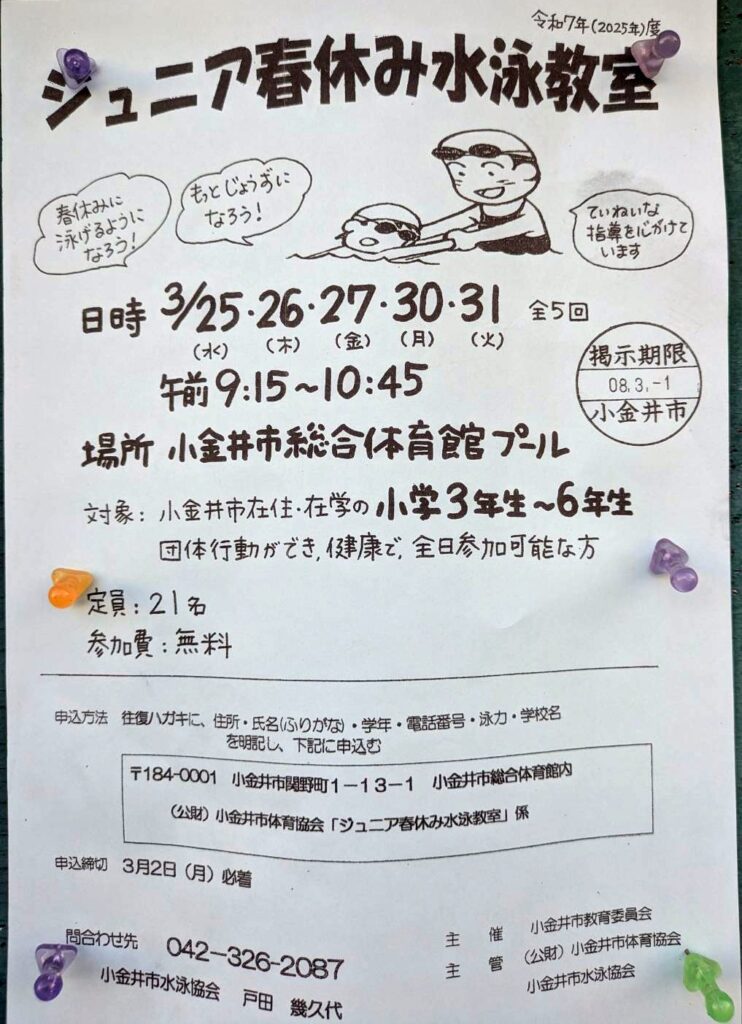 令和7年(2025年)度
ジュニア春休み水泳教室
春休みに
泳げるように
なろう!
もっとじょうずに
なろう!
ていねいな
指導を心がけて
います
日時 3/25・26・27・30・31 全5回
(水) (木) (金) (月) (火)
午前9:15~10:45
掲示期限
08.3.-1
小金井市
場所 小金井市総合体育館プール
対象: 小金井市在住・在学の小学3年生~6年生
団体行動ができ,健康で,全日参加可能な方
定員:21名
参加費:無料
申込方法 往復ハガキに、住所・氏名(ふりがな)・学年・電話番号・泳力・学校名
を明記し、下記に申込む
〒184-0001 小金井市関野町1-13-1 小金井市総合体育館内
(公財)小金井市体育協会「ジュニア春休み水泳教室」係
申込締切 3月2日(月)必着
問合わせ先 042-326-2087
小金井市水泳協会 戸田 幾久代
主 催 小金井市教育委員会
主 管 (公財)小金井市体育協会
小金井市水泳協会